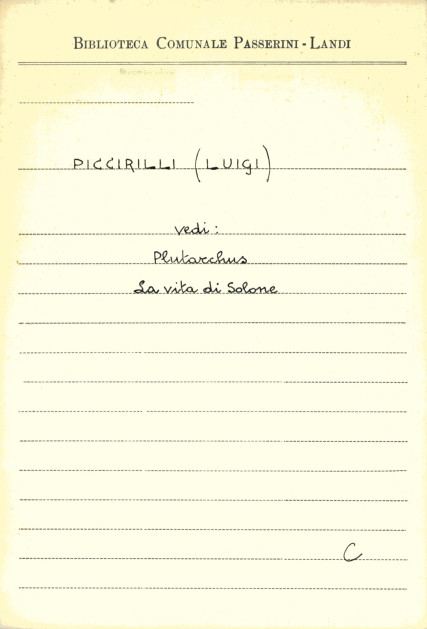 BIBLIOTECA COMUNALE PASSERINI - LANDI
PICCIRILLI (LUIGI)
vedi:
Plutarchus
La vita di Solone
C